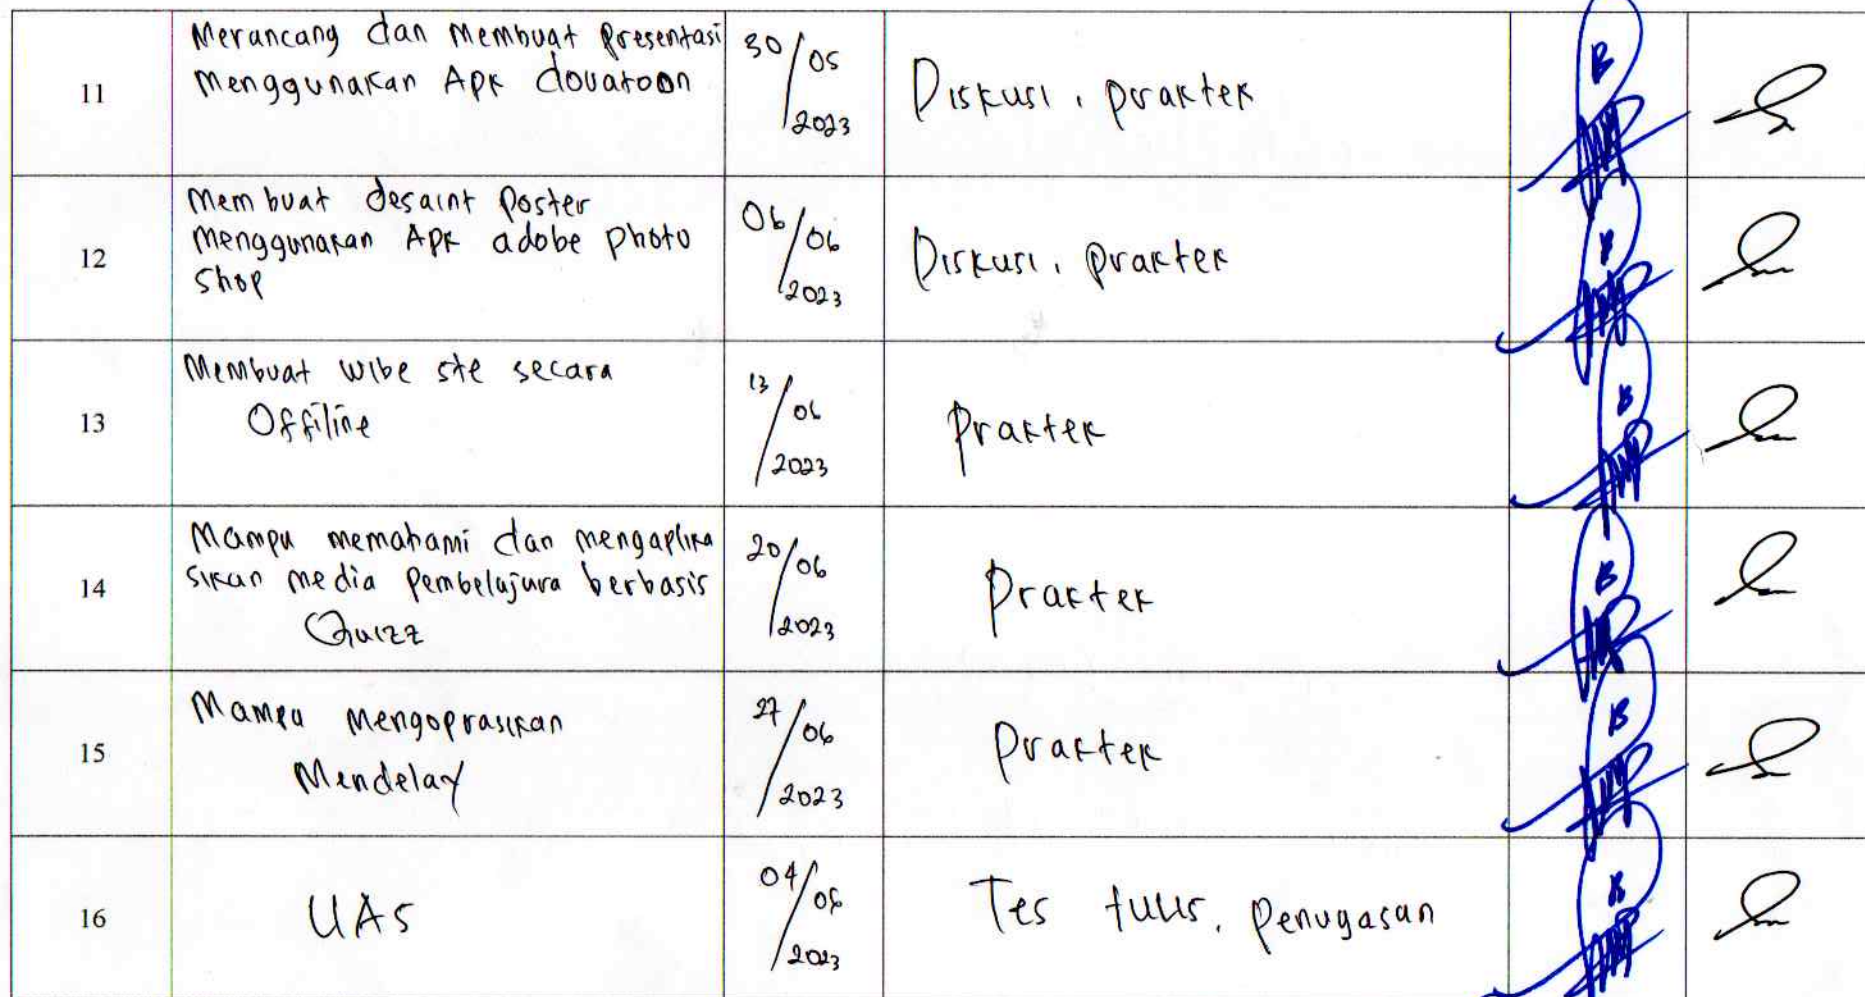 11
Merancang dan Membuat Presentasi
Menggunakan Apk douatoon
30/05
2023
Diskusi, praktek
12
Membuat desaint Poster
Menggunakan Apk adobe photo
shop
06/06
2023
Diskusi, praktek
13
Membuat wibe ste secara
Offiline
13/06
2023
Praktek
14
Mampu memahami dan mengaplika
sikan media Pembelajara berbasis
Quizz
20/06
2023
Praktek
15
Mampu Mengoprasikan
Mendelay
27/06
2023
Praktek
16
UAS
04/
2023
Tes tulis, Penugasan